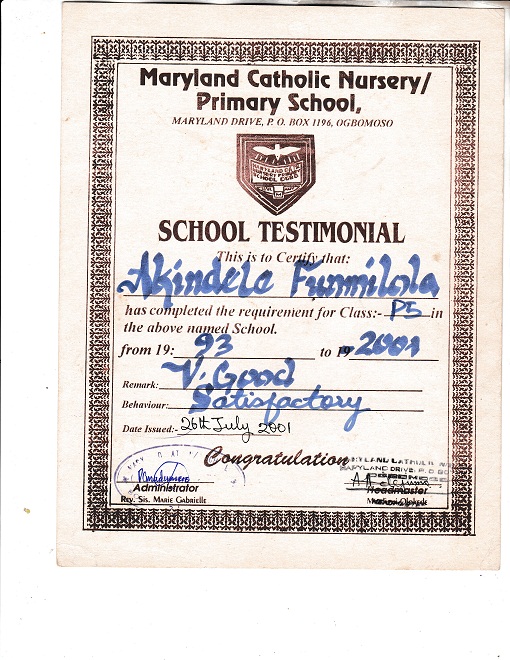 Maryland Catholic Nursery/
Primary School,
MARYLAND DRIVE, P. O. BOX 1196, OGBOMOSO
SCHOOL TESTIMONIAL
This is to Certify that:
Akindele Funmilola
has completed the requirement for Class:- P5 in
the above named School.
from 19: 93 to 19 2001
Remark: V. Good
Behaviour: Satisfactory
Date Issued:- 26th July 2001
Congratulation
MARYLAND CATHOLIC
MARYLAND DRIVE, P.O BO
Administrator Headmaster
Rev. Sis. MARIE GABRIELLE